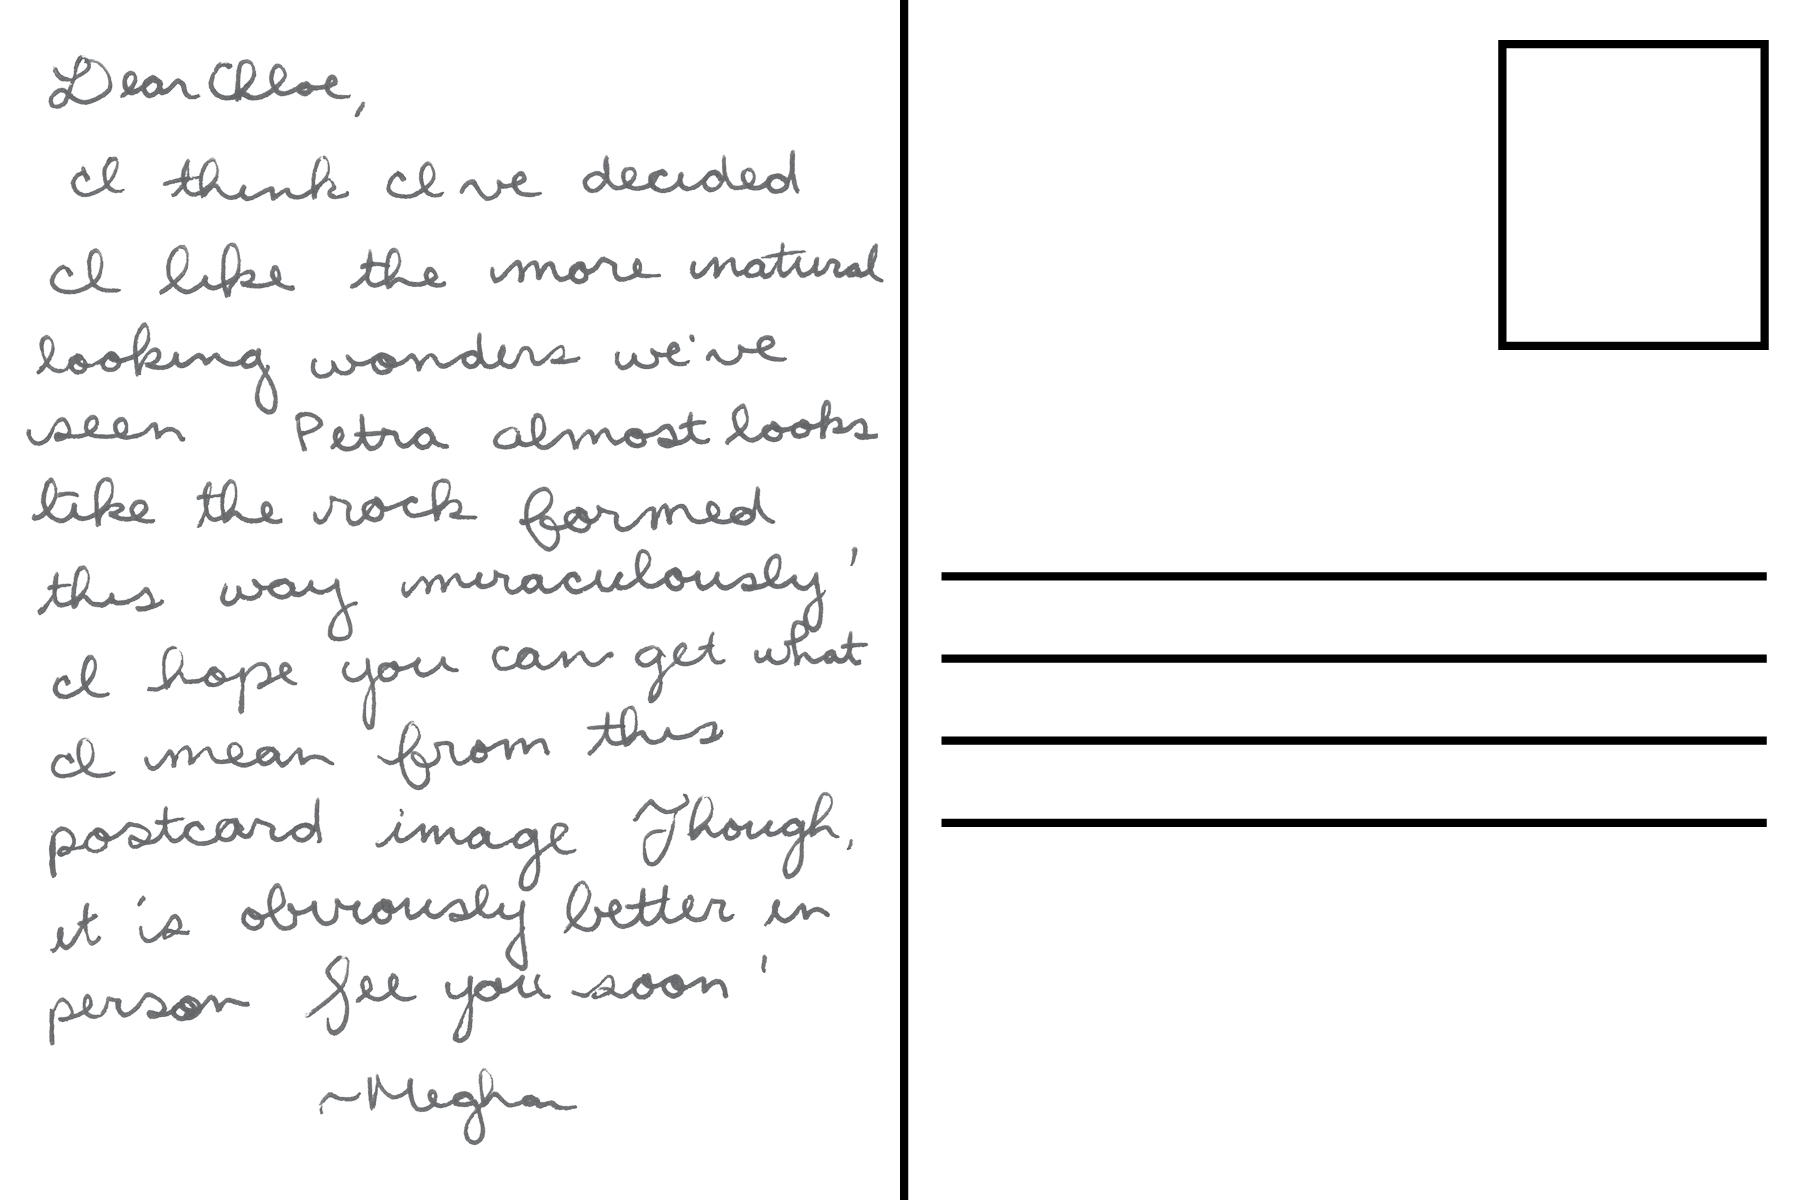 Dear Chloe,
I think I ve decided
I like the more natural
looking wonders we've
seen Petra almost looks
like the rock formed
this way miraculously'
I hope you can get what
I mean from this
postcard image Though,
it is obviously better in
person See you soon'
~Meghan